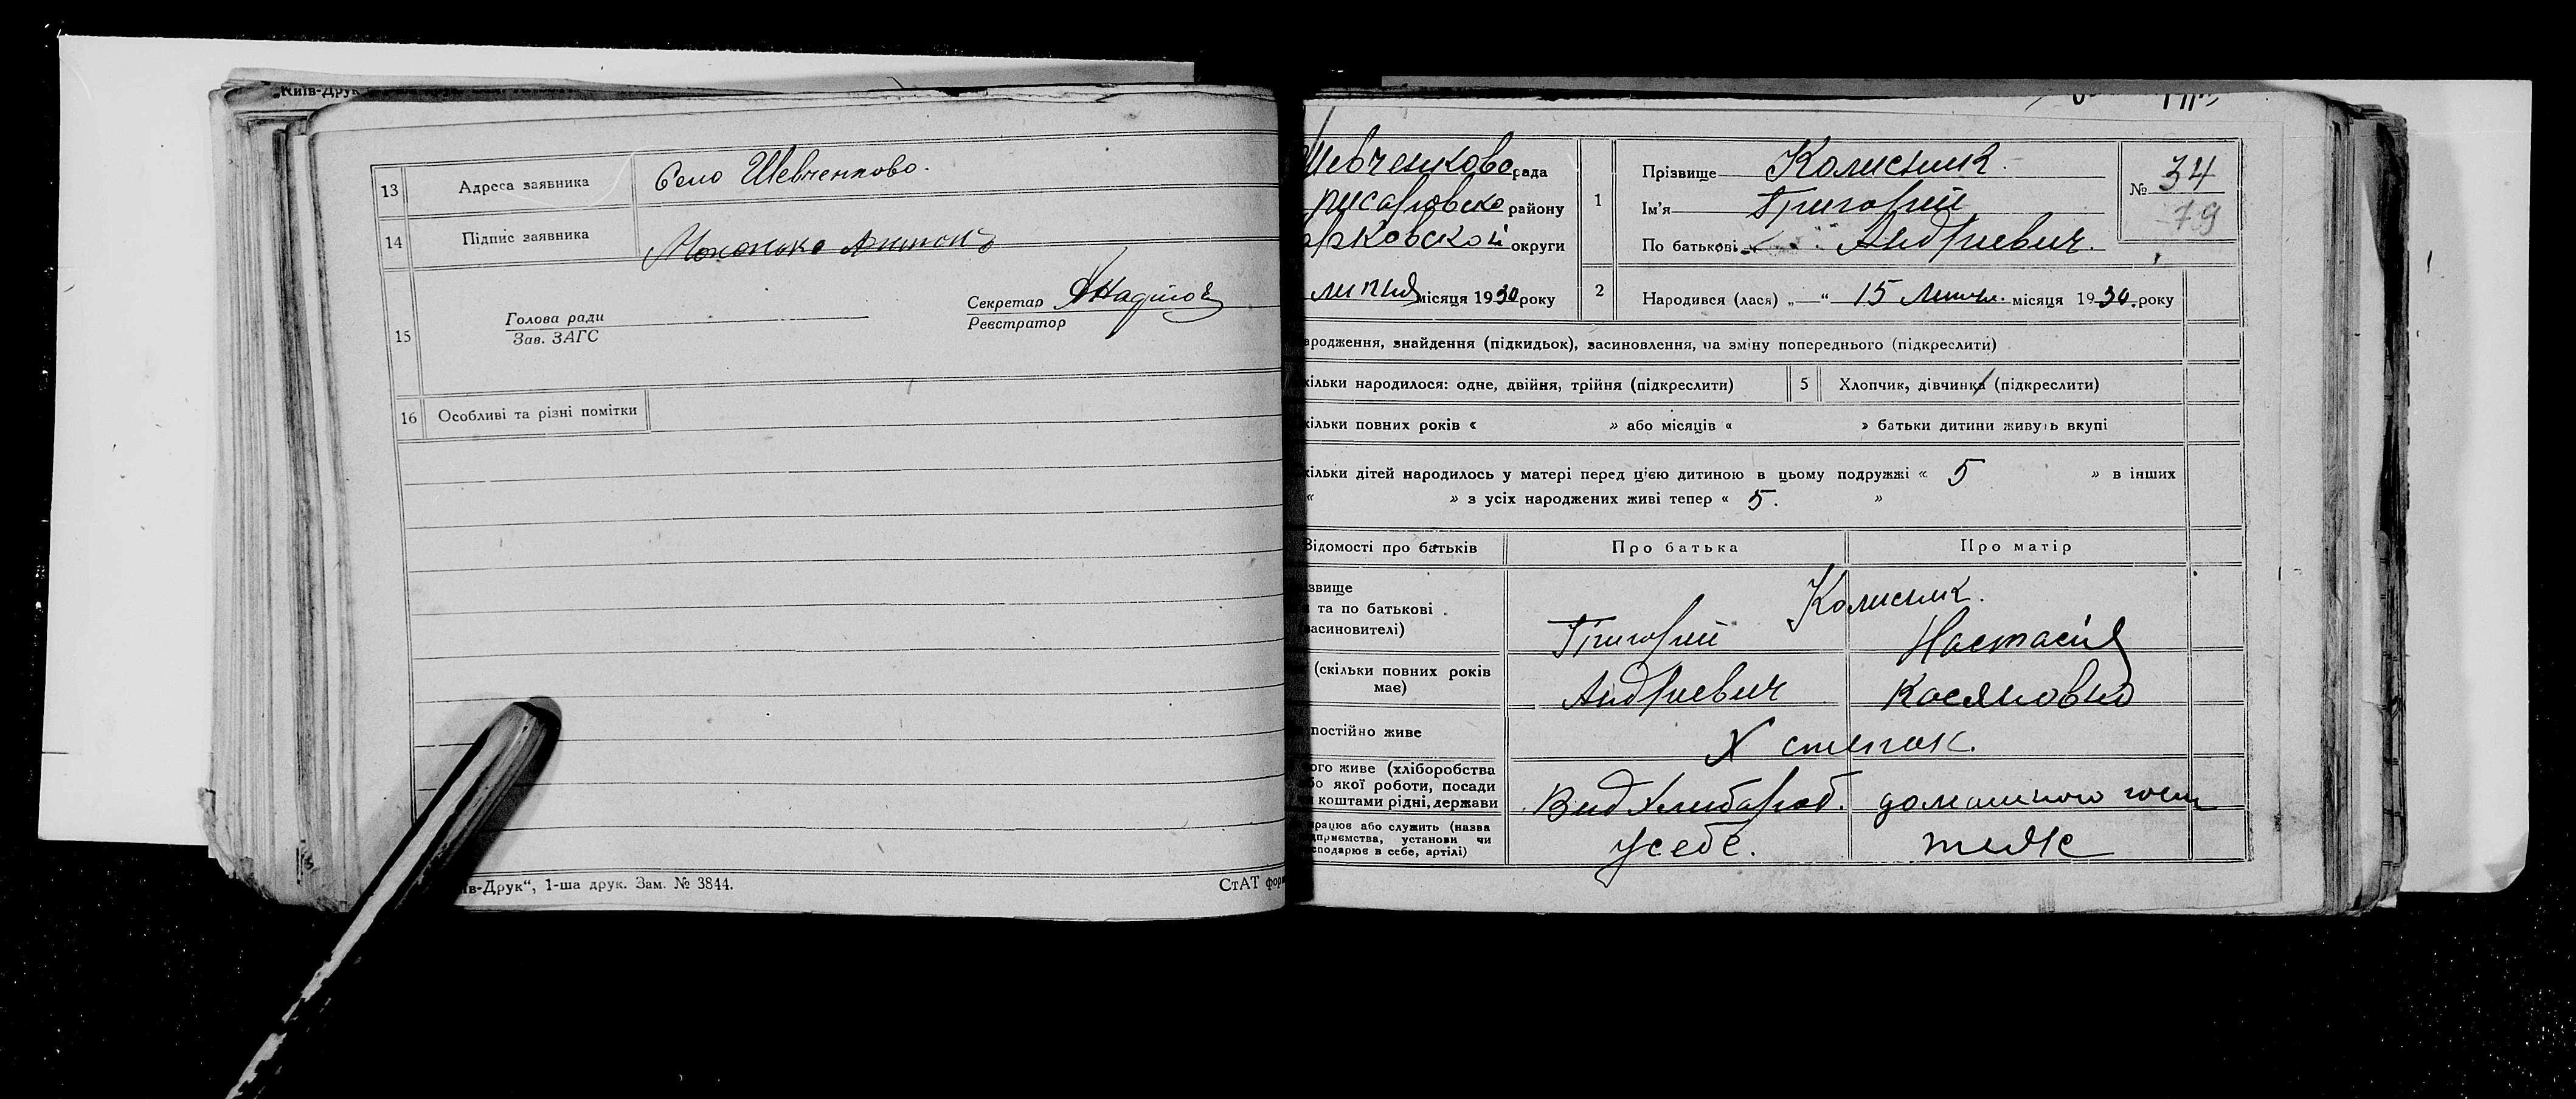 „Київ-Друк
13 Адреса заявника Село Шевченково.
14 Підпис заявника
15 Голова ради
Зав. ЗАГС
Секретар
Реєстратор
16 Особливі та різні помітки
ів-Друк“, 1-ша друк. Зам. № 3844. СтАТ фор
Шевченково рада
району
рковской округи
липня місяця 1930 року
1 Прізвище Колисник.
Ім'я Григорий
По батькові Андриевич.
№ 34
79
2 Народився (лася) „—“ 15 Липня. місяця 1930. року
ародження, знайдення (підкидьок), засиновлення, на зміну попереднього (підкреслити)
кільки народилося: одне, двійня, трійня (підкреслити) 5 Хлопчик, дівчинка (підкреслити)
кільки повних років « » або місяців « » батьки дитини живуть вкупі
кільки дітей народилось у матері перед цією дитиною в цьому подружжі « 5 » в інших
« » з усіх народжених живі тепер « 5. »
Відомості про батьків Про батька Про матір
звище
та по батькові
засиновителі)
Колисник.
Григорий Настасия
(скільки повних років
має)
Андриевич Касяновно
постійно живе Х степок.
ого живе (хліборобства
бо якої роботи, посади
коштами рідні, держави
Вид Хлибороб. домашного
працює або служить (назва
дприємства, установи чи
сподарює в себе, артілі)
усебе. теж